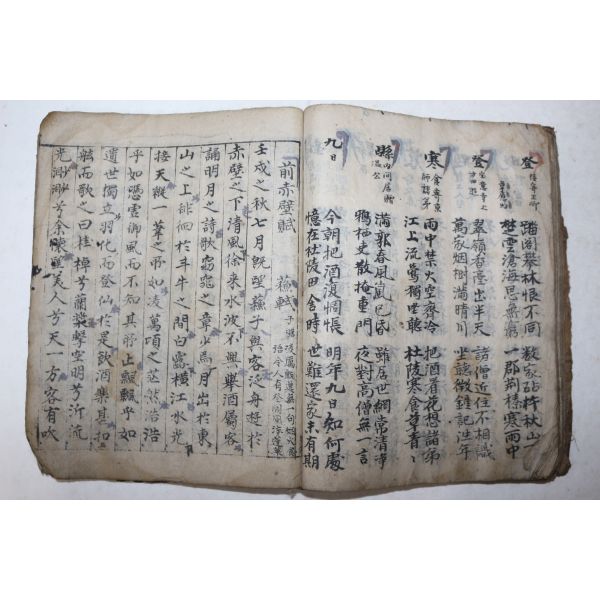 登樓寄王卿
踏閣攀林恨不同 數家砧杵秋山
楚雲滄海思無窮 一郡荊榛寒雨中
登寶意寺上方舊遊
翠嶺香臺出半天 諸僧近住不相識
萬家烟樹滿晴川 坐聽微鐘記往年
寒食寄京師諸弟
雨中禁火空齋冷 把酒看花想諸弟
江上流鶯獨坐聽 杜陵寒食草青青
縣內閒居贈溫公
滿郭春風嵐已昏 雖居世網常清淨
鴉栖吏散掩重門 夜對高僧無一言
九日
今朝把酒復惆悵 明年九日知何處
憶在杜陵田舍時 世難還家未有期
前赤壁賦 蘇軾
壬戌之秋七月旣望蘇子與客泛舟遊於
赤壁之下清風徐來水波不興擧酒屬客
誦明月之詩歌窈窕之章少焉月出於東
山之上徘徊於斗牛之間白露橫江水光
接天縱一葦之所如凌萬頃之茫然浩浩
乎如憑虛御風而不知其所止飄飄乎如
遺世獨立羽化而登仙於是飮酒樂甚扣
舷而歌之曰桂棹兮蘭槳擊空明兮泝流
光渺渺兮余懷望美人兮天一方客有吹